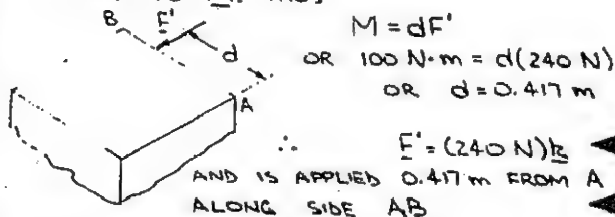 B
F'
d
A
M = dF'
OR 100 N·m = d(240 N)
OR d = 0.417 m
∴ F' = (240 N)k
AND IS APPLIED 0.417 m FROM A
ALONG SIDE AB